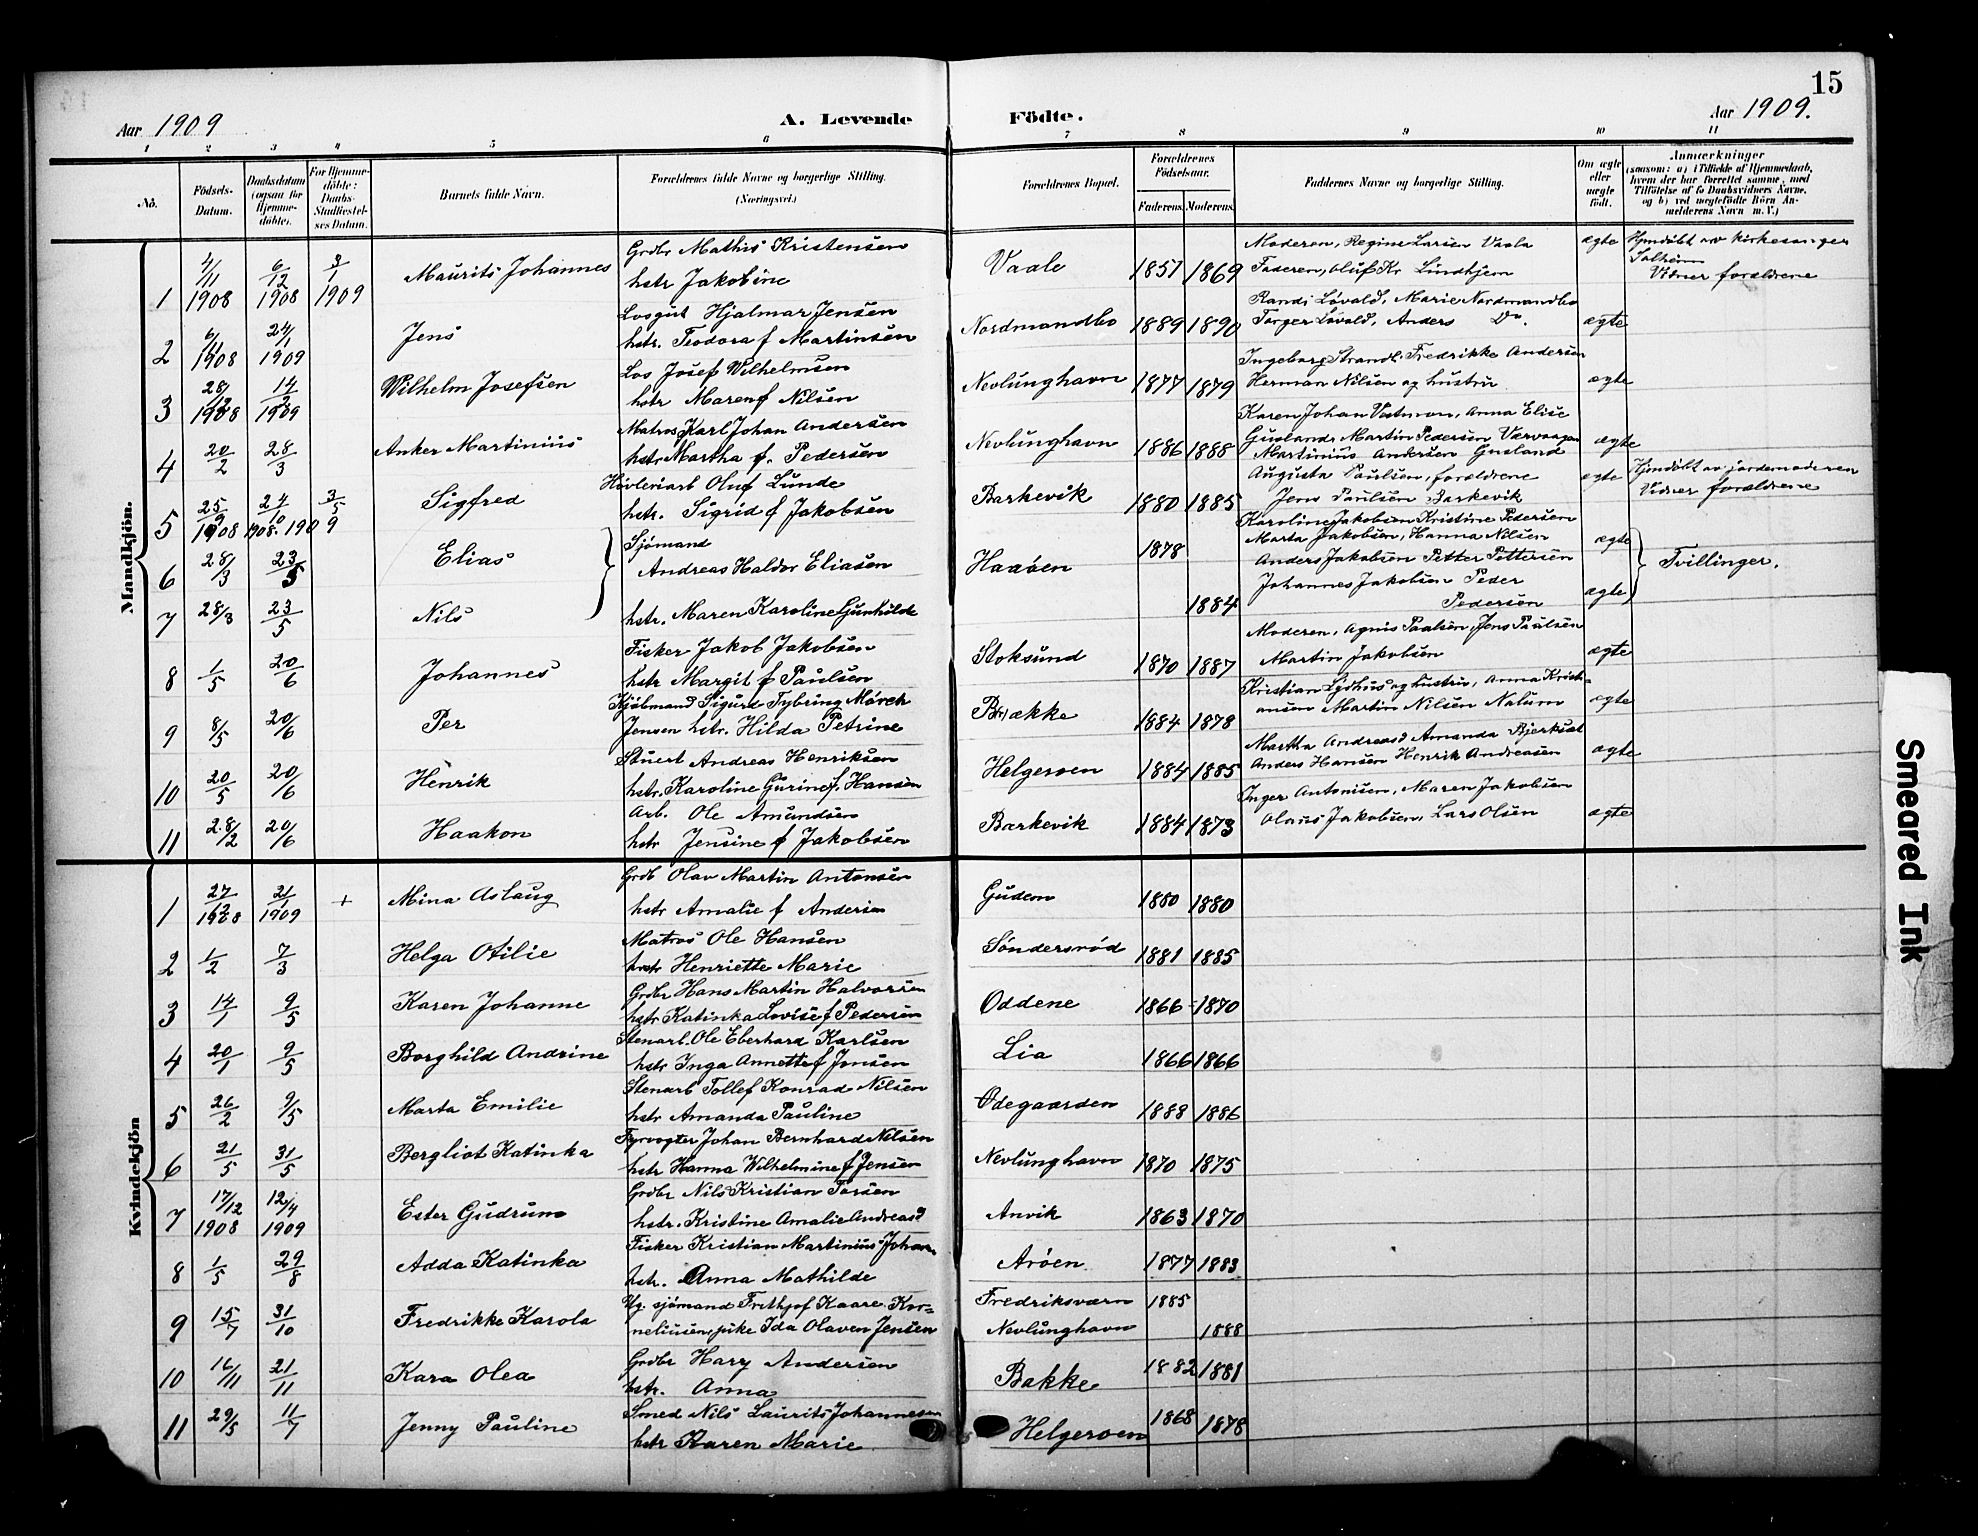 15
Aar 1909
A. Levende
Födte.
Aar 1909.
1 2 3 4 5 6 7 8 9 10 11
No.
Födsels-Datum.
Daabsdatum (ogsaa for Hjemmedöbte).
For Hjemmedöbte: Daabs-Stadfæstelses Datum.
Barnets fulde Navn.
Forældrenes fulde Navne og borgerlige Stilling.
(Næringsvei.)
Forældrenes Bopæl.
Forældrenes Födselsaar.
Faderens. Moderens.
Faddernes Navne og borgerlige Stilling.
Om ægte eller uægte födt.
Anmærkninger
(saasom: a) i Tilfælde af Hjemmedaab, hvem der har forrettet samme, med Tilföielse af to Daabsvidners Navne, og b) ved uægtefödte Börn Anmelderens Navn m. V.)
Mandkjön.
1 4/11 1908 6/12 1908 3/1 1909 Maurits Johannes
Grdbr Mathis Kristensen
hstr Jakobine
Vaale 1851 1869
Moderen, Regine Larsen Vaala
Faderen, Oluf Kr Lindhjem
ægte
Hjemdöbt av kirkesanger
Solheim
Vidner forældrene
2 6/11 1908 24/1 1909 Jens
Losgut Hjalmar Jensen
hstr. Teodora f Martinsen
Nordmandbo 1889 1890
Randi Lövald, Marie Nordmandbo
Torger Lövald, Anders Do.
ægte
3 28/12 1908 14/2 1909 Wilhelm Josefsen
Los Josef Wilhelmsen
hstr Maren f Nilsen
Nevlunghavn 1877 1879
Ingeborg Strandb. Fredrikke Andersen
Herman Nilsen og hustru
ægte
4 20/2 28/3 Anker Martinius
Matros Karl Johan Andersen
hstr Martha f. Pedersen
Nevlunghavn 1886 1888
Karen Johan Vestmon, Anna Elise
Gusland, Martin Pedersen Værvaagen
Martinius Andersen Gusland
ægte
5 25/9 1908 24/10 1908. 3/5 1909 Sigfred
Hövleriarb Oluf Lunde
hstr. Sigrid f Jakobsen
Barkevik 1880 1885
Augusta Paulsen, forældrene
Jens Paulsen Barkevik
ægte
Hjemdöbt av jordemoderen
Vidner forældrene
6 28/3 23/5 Elias
Sjömand
Andreas Haldor Eliasen
Haaöen 1878
Karoline Jakobsen Kristine Pedersen
Marta Jakobsen, Hanna Nilsen
Anders Jakobsen Petter Pettersen
ægte
Tvillinger.
7 28/3 23/5 Nils
hstr. Maren Karoline Gunhilde
1884
Johannes Jakobsen Peder
Pedersen
ægte
8 1/5 20/6 Johannes
Fisker Jakob Jakobsen
hstr Margit f Paulsen
Stoksund 1870 1887
Moderen, Agnis Paalsen, Jens Paulsen
Martin Jakobsen
ægte
9 8/5 20/6 Per
Kjöbmand Sigurd Tybring Mörch
Jensen hstr. Hilda Petrine
B(r)ække 1884 1878
Kristian Lydhus og hustru, Anna Kristi-
ansen Martin Nilsen Nalum
ægte
10 20/5 20/6 Henrik
Stuert Andreas Henriksen
hstr. Karoline Gurine f. Hansen
Helgeroen 1884 1885
Martha Andreasd Amanda Bjerksæt
Anders Hansen Henrik Andreasen
ægte
11 28/2 20/6 Haakon
Arb. Ole Amundsen
hstr Jensine f Jakobsen
Barkevik 1884 1873
Inger Antonisen, Maren Jakobsen
Olaus Jakobsen, Lars Olsen
ægte
Kvindekjön
1 27/12 1908 21/1 1909 + Mina Aslaug
Grdb Olav Martin Antonsen
hstr Amalie f Andersen
Gudem 1880 1880
2 1/2 7/3 Helga Otilie
Matros Ole Hansen
hstr Henriette Marie
Söndersröd 1881 1885
3 14/1 9/5 Karen Johanne
Grdbr Hans Martin Halvorsen
hstr Katinka Lovise f Pedersen
Oddene 1866 1870
4 20/1 9/5 Borghild Andrine
Stenarb. Ole Eberhard Karlsen
hstr Inga Annette f Jensen
Lia 1866 1866
5 26/2 9/5 Marta Emilie
Stenarb Tollef Konrad Nilsen
hstr Amanda Pauline
Ödegaarden 1888 1886
6 21/5 31/5 Bergliot Katinka
Fyrvogter Johan Bernhard Nilsen
hstr Hanna Wilhelmine f Jensen
Nevlunghavn 1870 1875
7 17/12 1908 12/4 1909 Ester Gudrun
Grdbr Nils Kristian Torsen
hstr. Kristine Amalie Andreasd
Anvik 1863 1870
8 1/5 29/8 Adda Katinka
Fisker Kristian Martinius Johan
hstr. Anna Mathilde
Aröen 1877 1883
9 15/7 31/10 Fredrikke Karola
Ug. sjömand Frithjof Kaare Kor-
neliusen, pike Ida Olaven Jensen
Fredriksværn 1885
Nevlunghavn 1888
10 16/11 21/11 Kara Olea
Grdbr Hary Andersen
hstr. Anna
Bakke 1882 1881
11 29/5 11/7 Jenny Pauline
Smed Nils Laurits Johannesen
hstr Karen Marie
Helgeroen 1868 1878
Smeared Ink